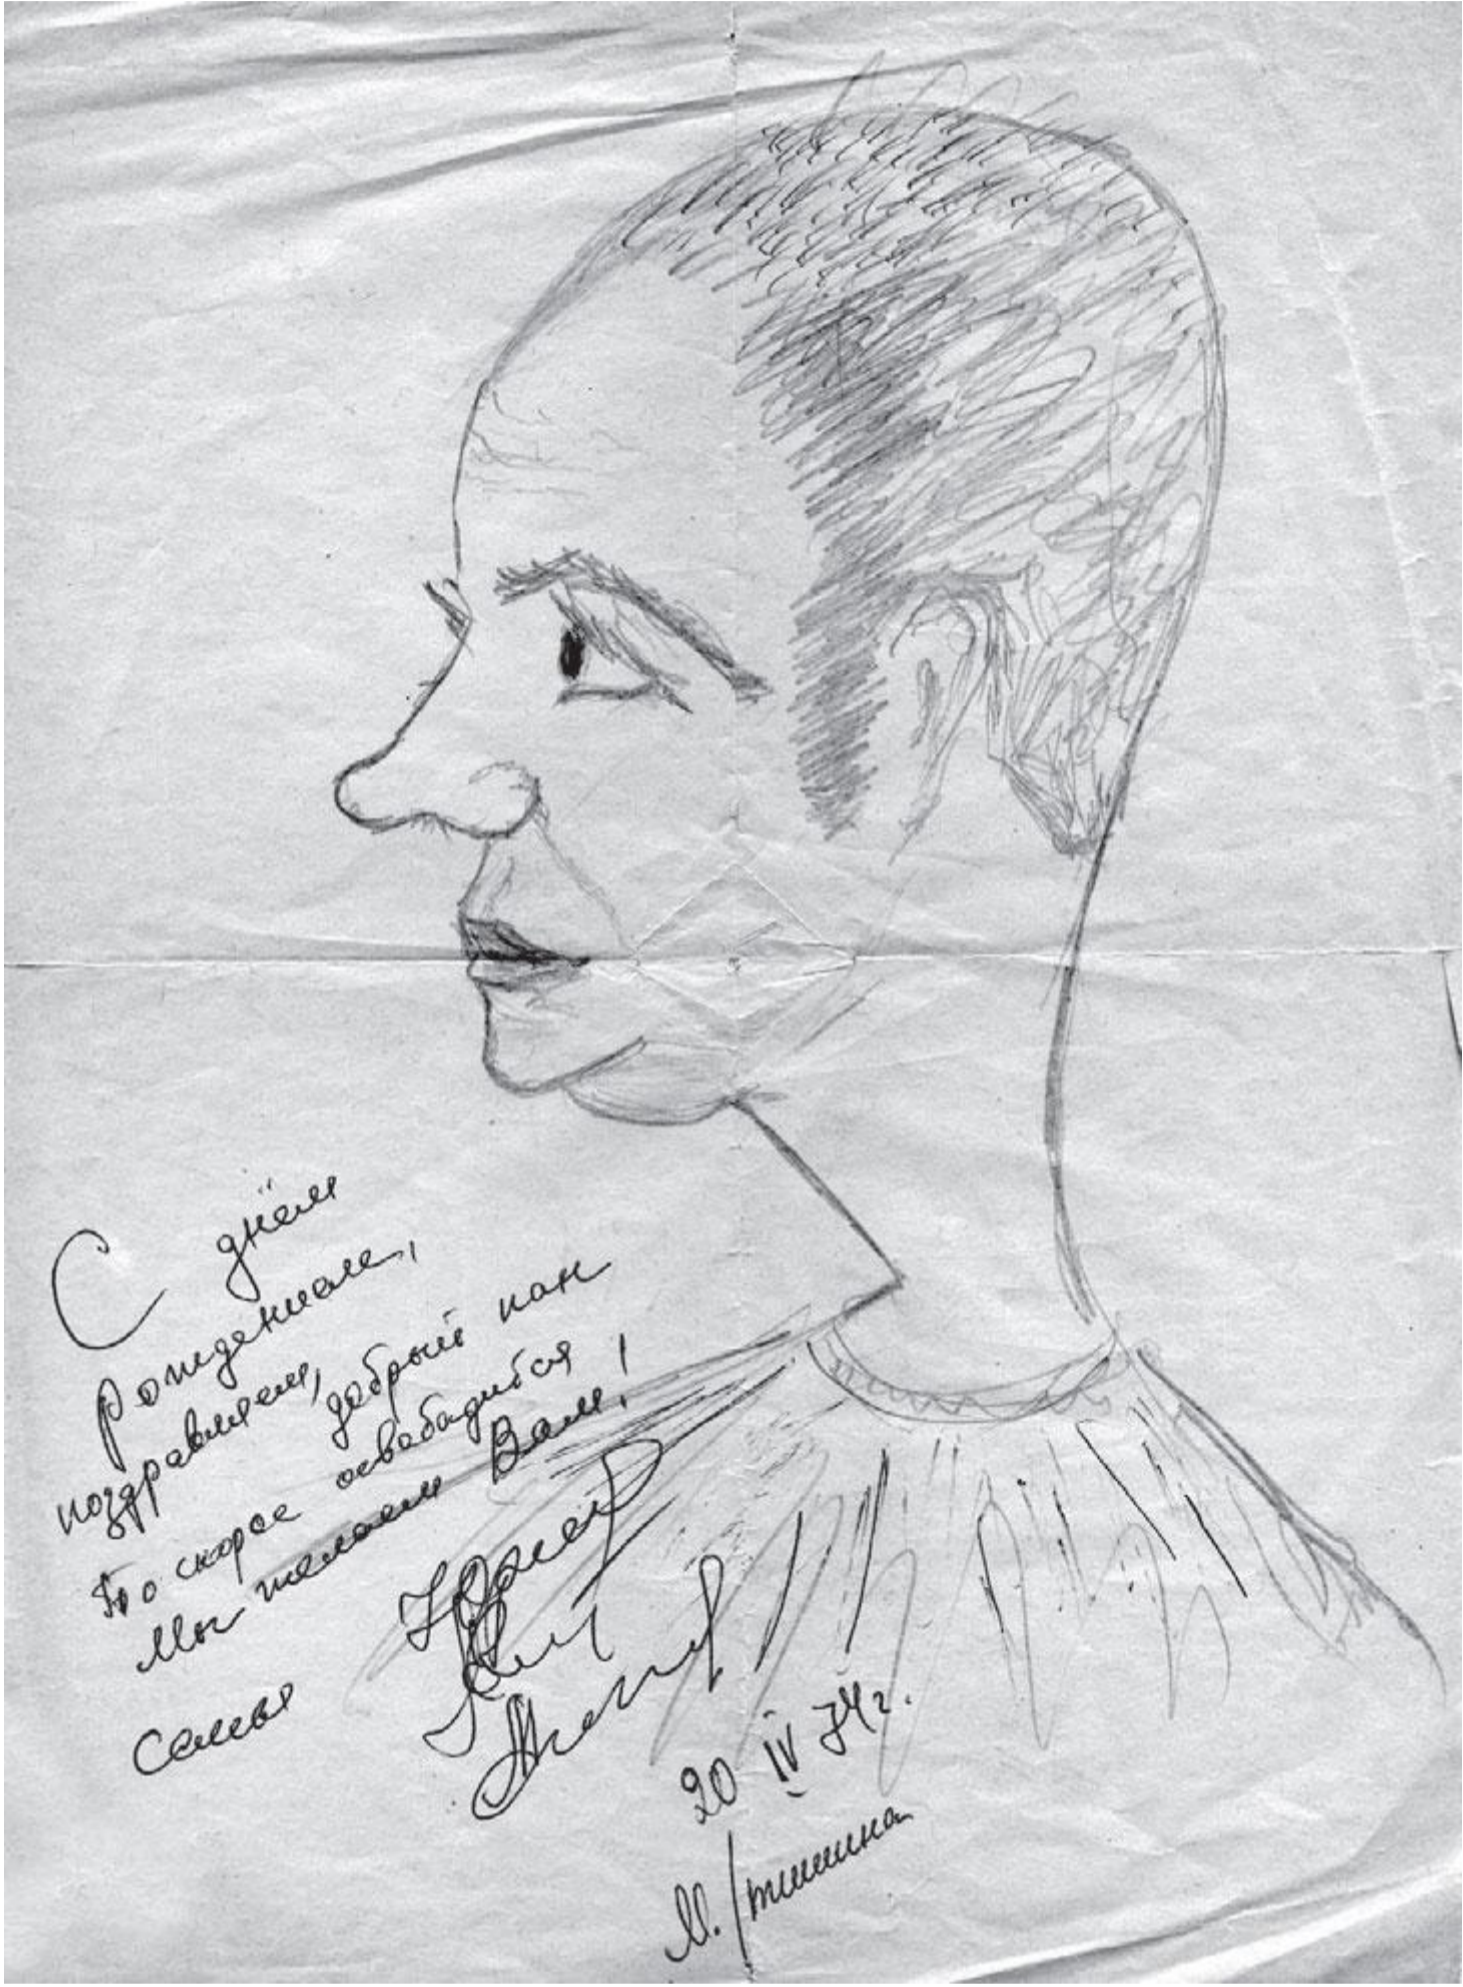 С днём
рождением,
поздравляем,
добрый пан
По скорее освабадится
Мы желаем Вам!
семья
20 IV 74 г.
М./тишина